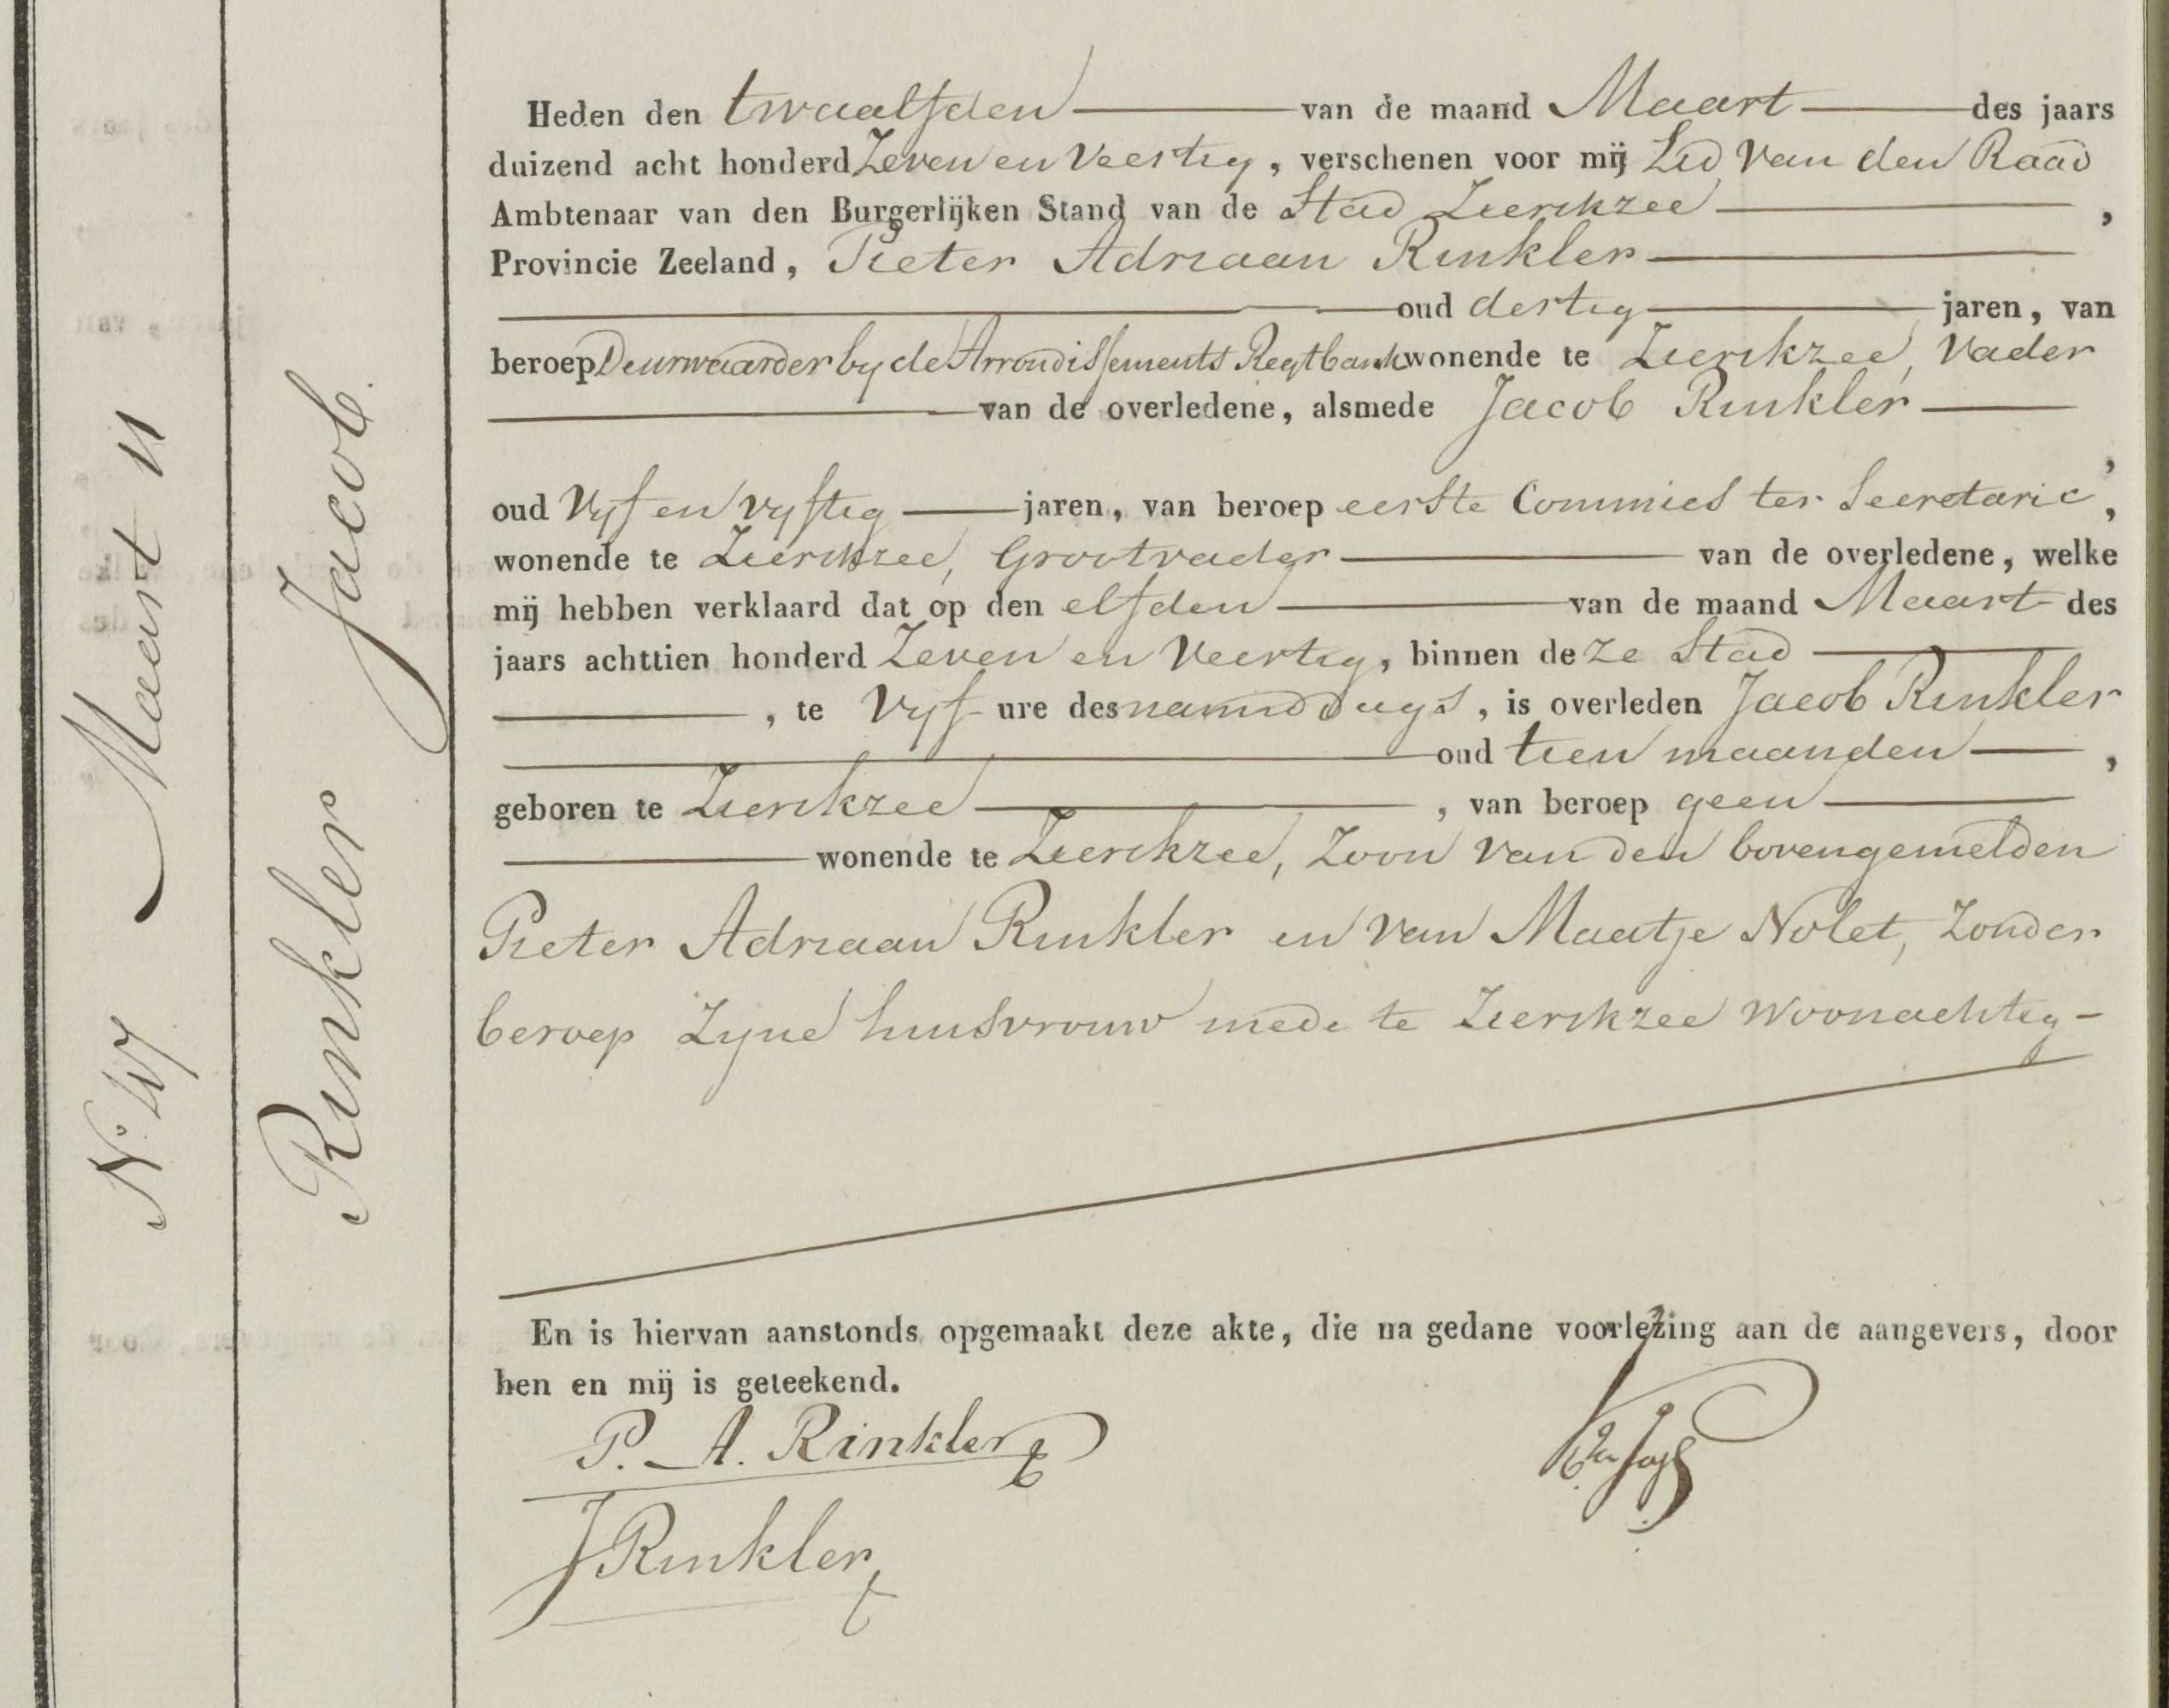 N.º 47 Maart 11
Rinkler Jacob.
Heden den twaalfden van de maand Maart des jaars
duizend acht honderd Zeven en Veertig, verschenen voor mij Lid van den Raad
Ambtenaar van den Burgerlijken Stand van de Stad Zierikzee,
Provincie Zeeland, Pieter Adriaan Rinkler
oud dertig jaren, van
beroep Deurwaarder by de Arrondissements Regtbank wonende te Zierikzee, Vader
van de overledene, alsmede Jacob Rinkler
,
oud Vyf en vyftig jaren, van beroep eerste Commies ter Secretarie,
wonende te Zierikzee, Grootvader van de overledene, welke
mij hebben verklaard dat op den elfden van de maand Maart des
jaars achttien honderd Zeven en Veertig, binnen deze Stad
, te Vyf ure des namiddags, is overleden Jacob Rinkler
oud tien maanden,
geboren te Zierikzee, van beroep geen
wonende te Zierikzee, Zoon van den bovengemelden
Pieter Adriaan Rinkler en van Maatje Nolet, Zonder
beroep Zyne huisvrouw mede te Zierikzee Woonachtig
En is hiervan aanstonds opgemaakt deze akte, die na gedane voorlezing aan de aangevers, door
hen en mij is geteekend.
P. A. Rinkler
J Rinkler